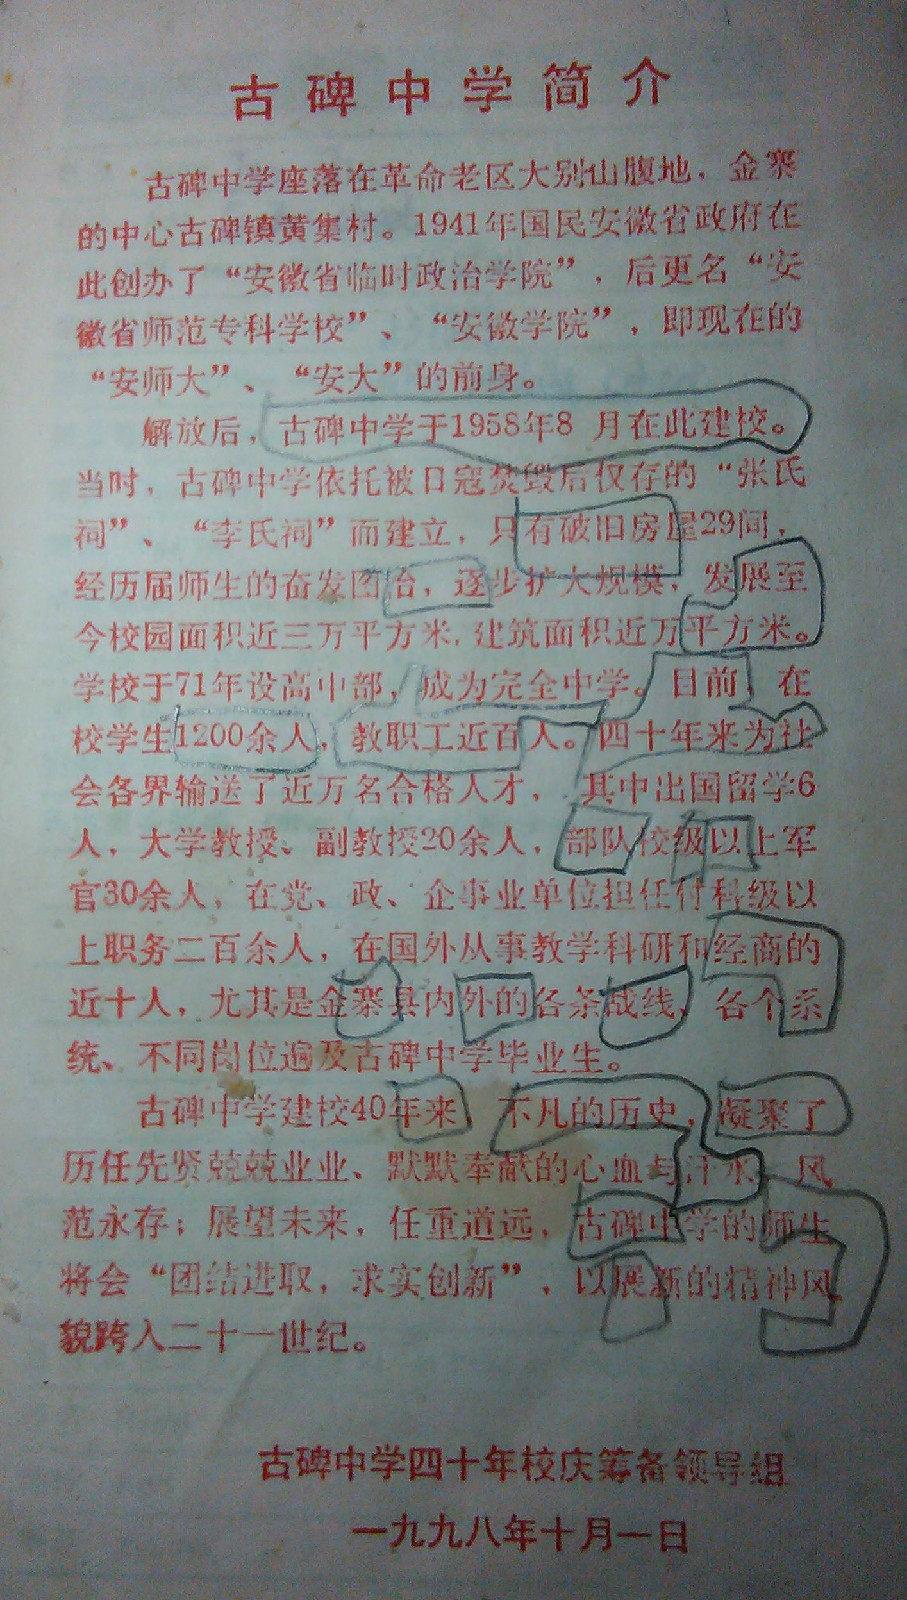 古碑中学简介
古碑中学座落在革命老区大别山腹地，金寨
的中心古碑镇黄集村。1941年国民安徽省政府在
此创办了“安徽省临时政治学院”，后更名“安
徽省师范专科学校”、“安徽学院”，即现在的
“安师大”、“安大”的前身。
解放后，古碑中学于1958年8月在此建校。
当时，古碑中学依托被日寇焚毁后仅存的“张氏
祠”、“李氏祠”而建立，只有破旧房屋29间，
经历届师生的奋发图治，逐步扩大规模，发展至
今校园面积近三万平方米，建筑面积近万平方米。
学校于71年设高中部，成为完全中学。目前，在
校学生1200余人，教职工近百人。四十年来为社
会各界输送了近万名合格人才，其中出国留学6
人，大学教授、副教授20余人，部队校级以上军
官30余人，在党、政、企事业单位担任付科级以
上职务二百余人，在国外从事教学科研和经商的
近十人，尤其是金寨县内外的各条战线，各个系
统、不同岗位遍及古碑中学毕业生。
古碑中学建校40年来，不凡的历史，凝聚了
历任先贤兢兢业业、默默奉献的心血与汗水，风
范永存；展望未来，任重道远，古碑中学的师生
将会“团结进取，求实创新”，以展新的精神风
貌跨入二十一世纪。
古碑中学四十年校庆筹备领导组
一九九八年十月一日